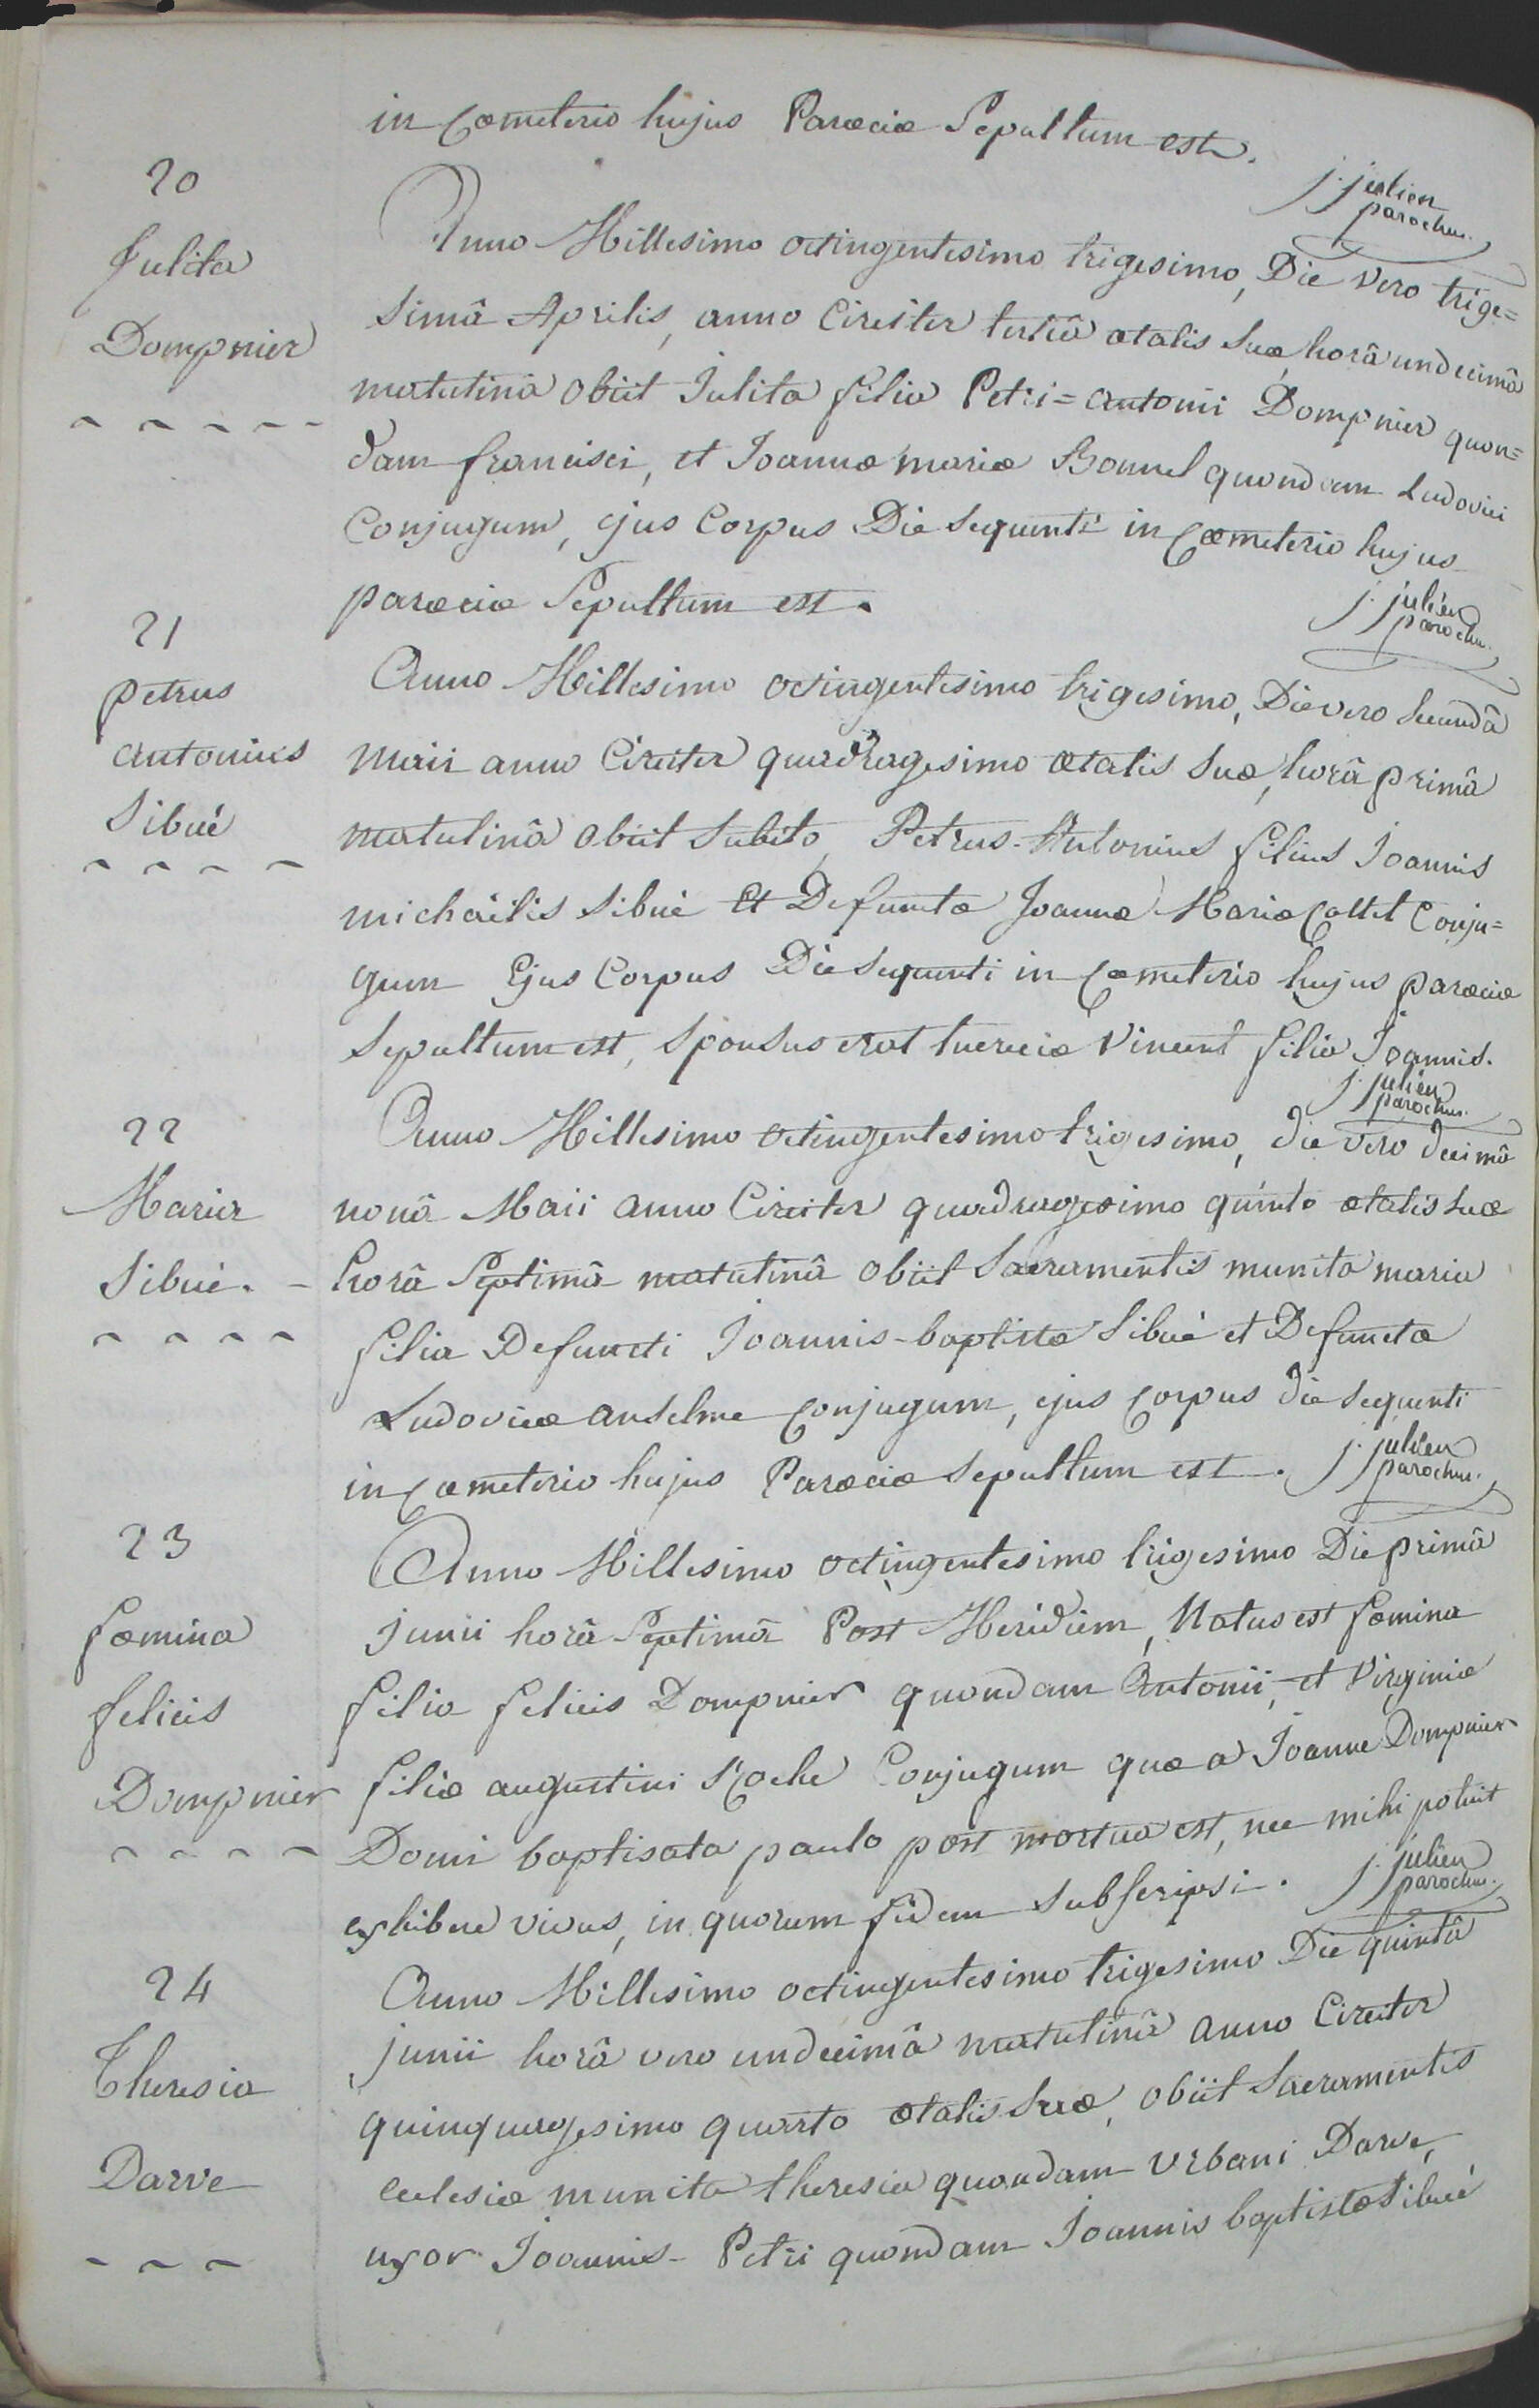 in Cœmeterio hujus Parœciæ Sepultum est.
j. julien
parochus.
20
Julita
Dompnier
Anno Millesimo octingentesimo trigesimo, Die vero trige=
simâ Aprilis, anno Circiter tertiô ætatis Suæ, horâ undecimâ
matutinâ obiit Julita filia Petri=antonii Dompnier quon=
dam francisci, et Joannæ mariæ Bonnel quondam Ludovici
Conjugum, ejus Corpus Die Sequenti in Cœmeterio hujus
parœciæ Sepultum est.
j. julien
parochus.
21
petrus
antonius
Sibué
Anno Millesimo octingentesimo trigesimo, Die vero Secundâ
Maii anno Circiter quadragesimo ætatis Suæ, horâ primâ
matutinâ obiit Subito, Petrus-Antonius filius Joannis
michaëlis Sibué et Defunctæ Joannæ Mariæ Collet Conju=
gum Ejus Corpus Die Sequenti in Cœmeterio hujus parœciæ
Sepultum est, Sponsus erat lucreciæ Vincent filiæ Joannis.
j. julien
parochus.
22
Maria
Sibué.
Anno Millesimo octingentesimo trigesimo, die vero decimâ
nonâ Maii anno Circiter quadragesimo quinto ætatis Suæ
horâ Septimâ matutinâ obiit Sacramentis munita maria
filia Defuncti Joannis-baptistæ Sibué et Defunctæ
Ludovicæ anselme Conjugum, ejus Corpus die Sequenti
in Cœmeterio hujus Parœciæ Sepultum est.
j. julien
parochus.
23
fœmina
felicis
Dompnier
Anno Millesimo octingentesimo trigesimo Die primâ
junii horâ Septimâ Post Meridiem, Natus est fœmina
filia felicis Dompnier quondam Antonii, et Virginiæ
filiæ augustini Coche Conjugum quæ a Joanne Dompnier
Domi baptisata paulo post mortua est, nec mihi potuit
exhibere vivus, in quorum fidem Subscripsi.
j. julien
parochus.
24
Theresia
Darve
Anno Millesimo octingentesimo trigesimo Die quintâ
junii horâ vero undecimâ matutinâ anno Circiter
quinquagesimo quarto ætatis Suæ, obiit Sacramentis
ecclesiæ munita theresia quondam Urbani Darve,
uxor Joannis-Petri quondam Joannis baptistæ Sibué